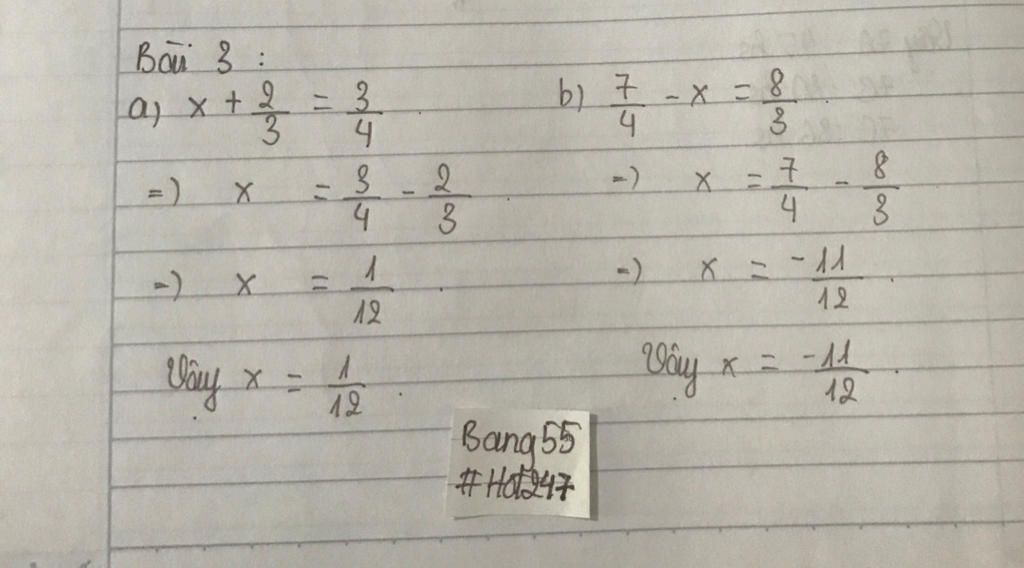 Bài 3 :
a) x + 2/3 = 3/4 .
=) x = 3/4 - 2/3 .
=) x = 1/12 .
Vậy x = 1/12 .
b) 7/4 - x = 8/3 .
=) x = 7/4 - 8/3
=) x = -11/12 .
Vậy x = -11/12 .
Bang55
#Hot247